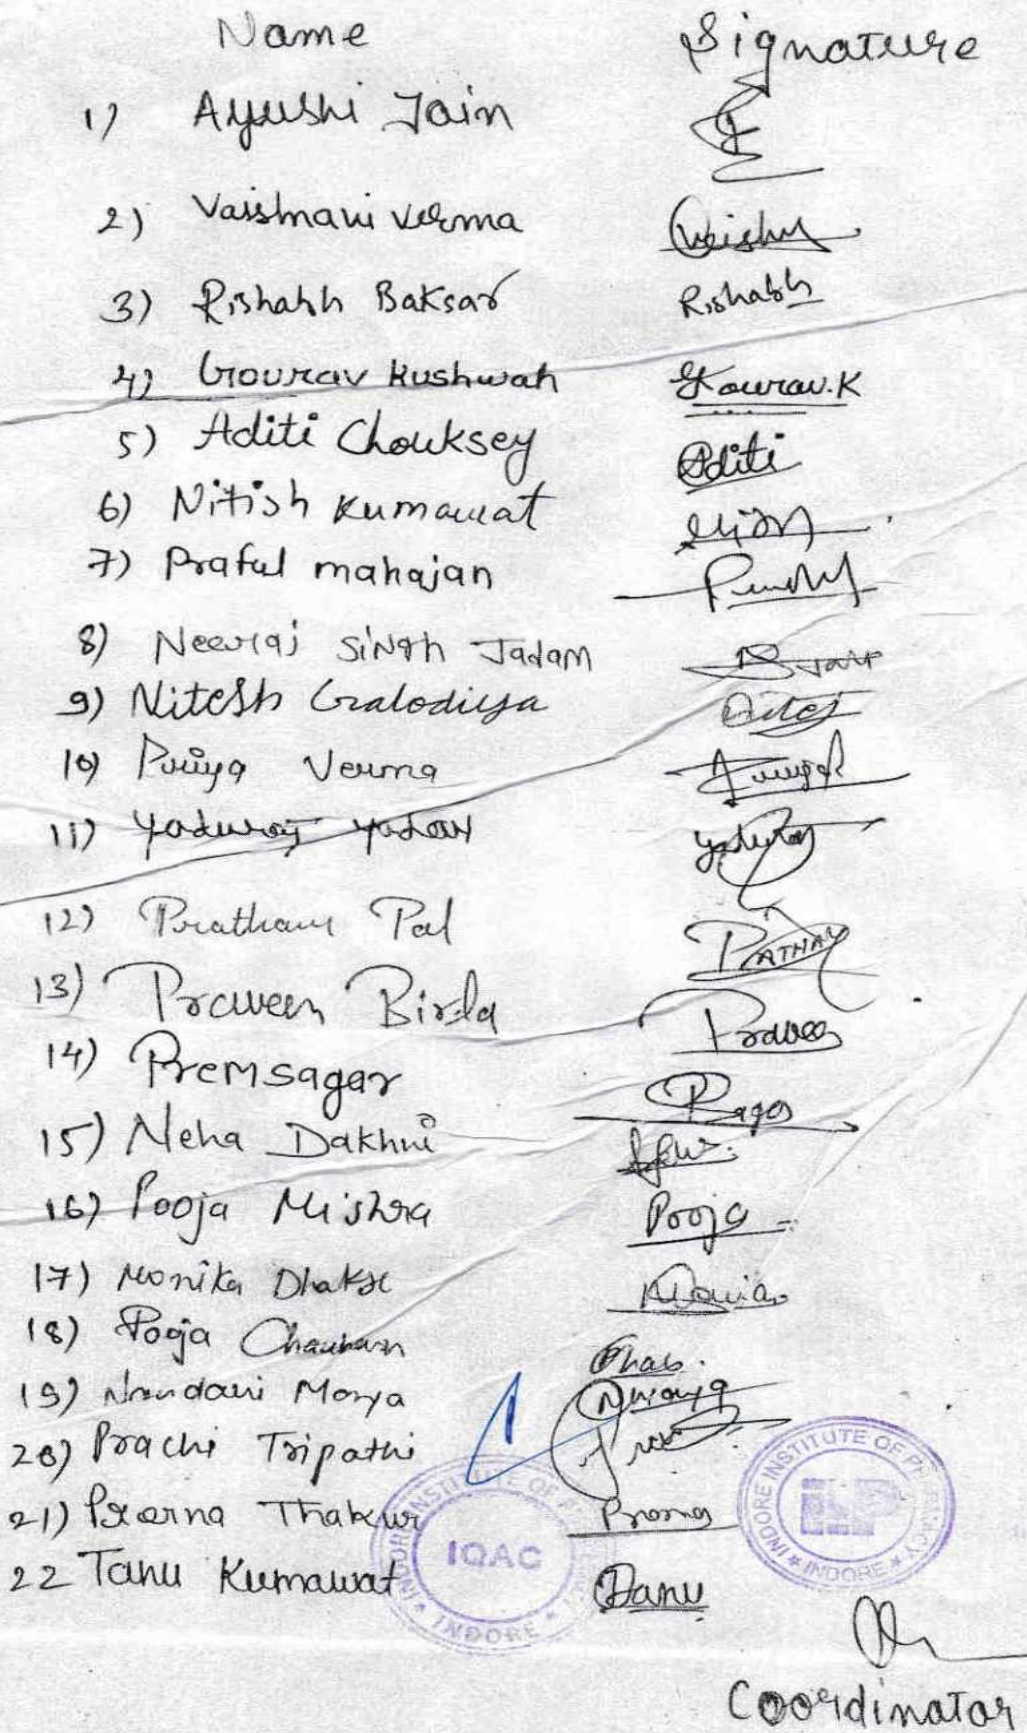 Name Signature
1) Ayushi Jain
2) Vaishnavi Verma Vaishu
3) Rishabh Baksar Rishabh
4) Gourav Kushwah Gourav.K
5) Aditi Chouksey Aditi
6) Nitish Kumawat
7) Praful mahajan
8) Neeraj SiNgh Jadam
9) Nitesh Galodiya Nitesh
10) Puiya Verma
11) Yaduraj Yadav Yaduraj
12) Pratham Pal PRATHAM
13) Praveen Birla Praveen
14) Premsagar
15) Neha Dakhni
16) Pooja Mishra Pooja
17) Monika Dhakse Monika
18) Pooja Chauhan
19) Nandani Morya NMorya
20) Prachi Tripathi
21) Prerna Thakur Prerna
22 Tanu Kumawat Tanu
INDORE INSTITUTE OF PHARMACY * INDORE *
IQAC
INDORE INSTITUTE OF PHARMACY * INDORE *
IIP
Coordinator